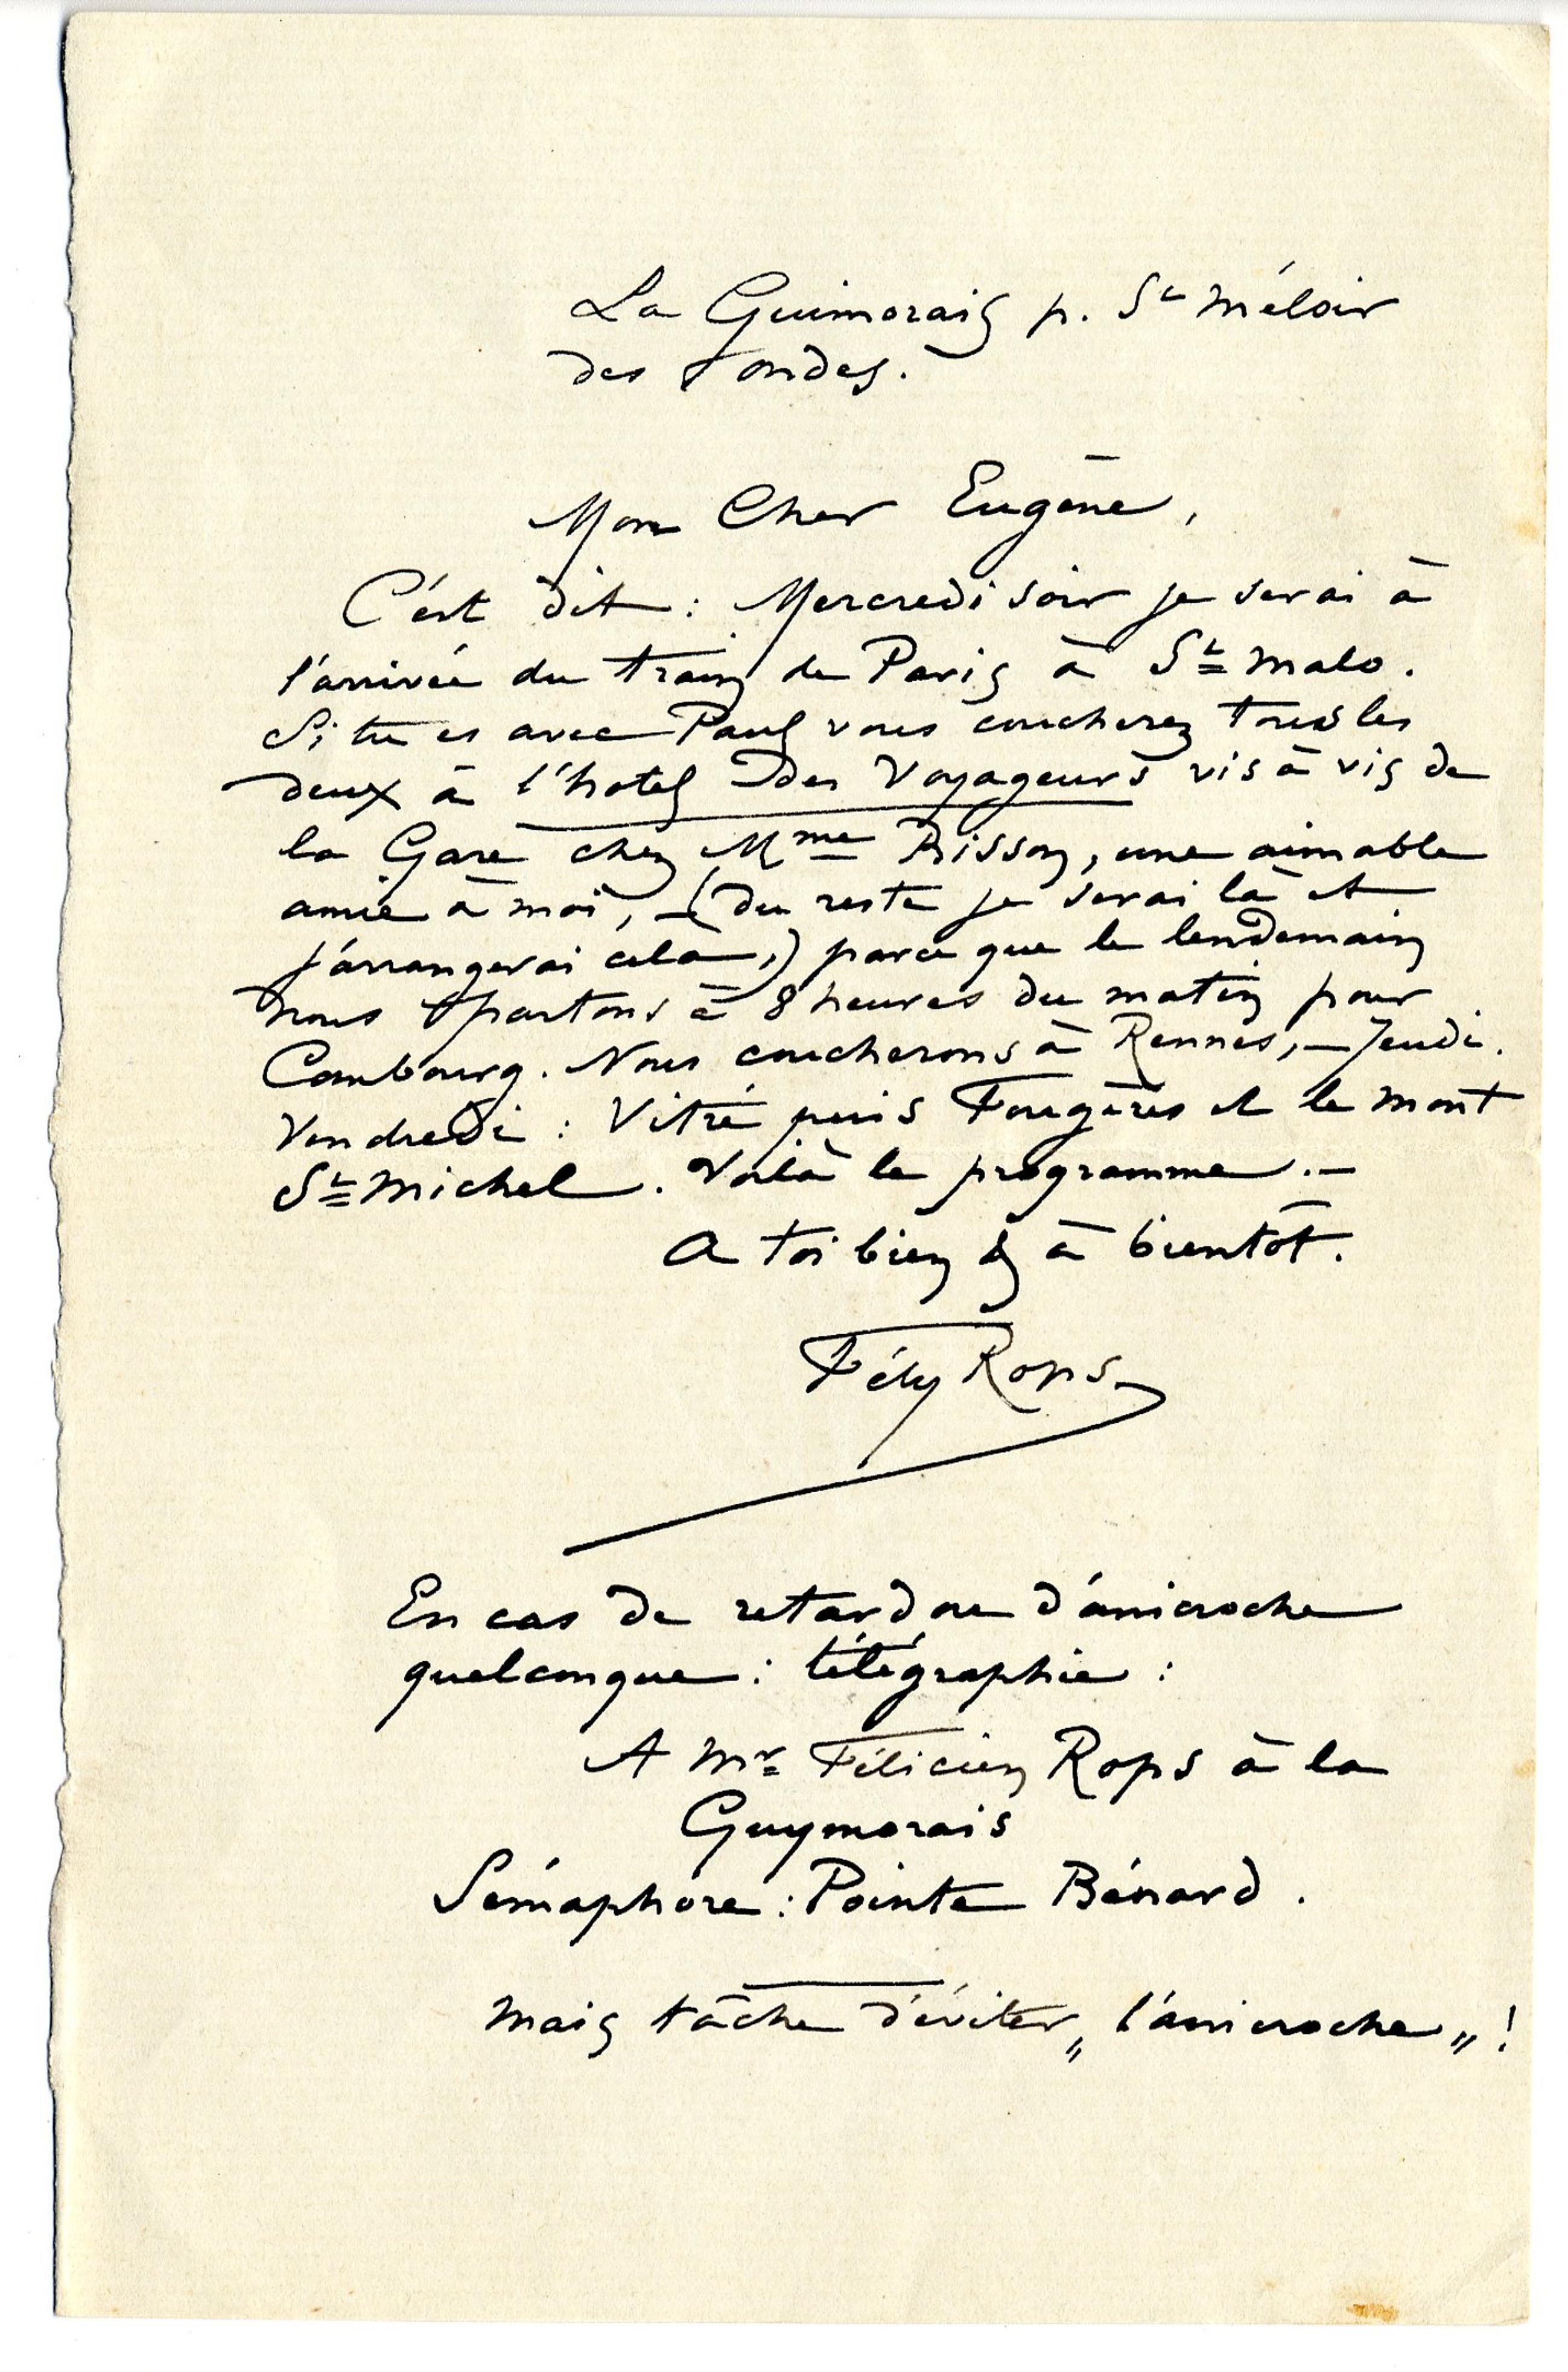 La Guimorais p. St Méloir
des Ondes.
Mon Cher Eugène,
C'est dit : Mercredi soir je serai à
l'arrivée du train de Paris à St Malo.
Si tu es avec Paul vous coucherez tous les
deux à l'hotel des Voyageurs vis à vis de
la Gare chez Mme Bisson, une aimable
amie à moi, – (du reste je serai là et
j'arrangerai cela,) parce que le lendemain
nous partons à 8 heures du matin pour
Combourg. Nous coucherons à Rennes, – Jeudi.
Vendredi : Vitré puis Fougères et le mont
St Michel. Voilà le programme. –
A toi bien & à bientôt.
Fély Rops
En cas de retard ou d'anicroche
quelconque : télégraphie :
A Mr Félicien Rops à la
Guymorais
Sémaphore : Pointe Bénard.
Mais tâche d'éviter „ l'anicroche „ !